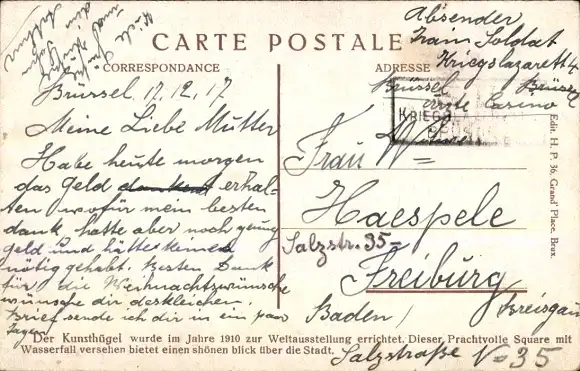 Viele
und
dein
Arthur
CARTE POSTALE
CORRESPONDANCE
ADRESSE
Absender
Soldat
Kriegslazarett 4
Brüssel Brüssel
erste Casino
KRIEGS
Brüssel 17.12.17
Meine Liebe Mutter
Habe heute morgen
das Geld dankend erhal-
ten wofür mein besten
dank hatte aber noch genug
geld und hättes keines
nötig gehabt. Besten Dank
für die Weihnachtswünsche
wünsche dir desgleichen.
Brief sende ich dir in ein paar
Tagen
Frau W=
Haespele
Salzstr. 35=
Freiburg
Baden / Breisgau
Salzstraße N=35
Edit. H. P. 36, Grand' Place, Brux.
Der Kunsthügel wurde im Jahre 1910 zur Weltausstellung errichtet. Dieser Prachtvolle Square mit
Wasserfall versehen bietet einen shönen blick über die Stadt.